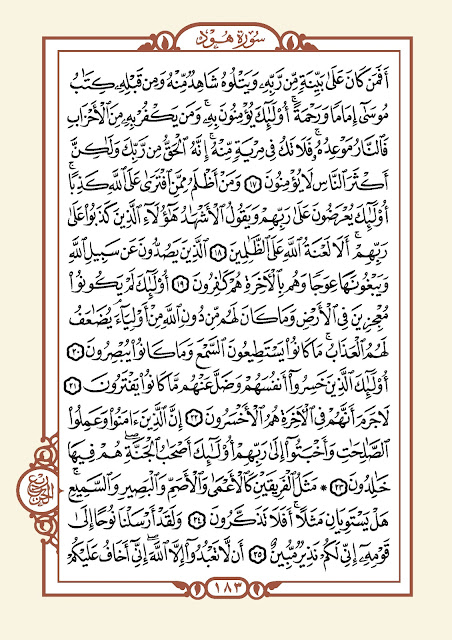 سُورَةُ هُودٍ
أَفَمَن كَانَ عَلَىٰ بَيِّنَةٍ مِّن رَّبِّهِۦ وَيَتْلُوهُ شَاهِدٌ مِّنْهُ وَمِن قَبْلِهِۦ كِتَٰبُ
مُوسَىٰٓ إِمَامًا وَرَحْمَةً ۚ أُو۟لَٰٓئِكَ يُؤْمِنُونَ بِهِۦ ۚ وَمَن يَكْفُرْ بِهِۦ مِنَ ٱلْأَحْزَابِ
فَٱلنَّارُ مَوْعِدُهُۥ ۚ فَلَا تَكُ فِى مِرْيَةٍ مِّنْهُ ۚ إِنَّهُ ٱلْحَقُّ مِن رَّبِّكَ وَلَٰكِنَّ
أَكْثَرَ ٱلنَّاسِ لَا يُؤْمِنُونَ ١٧ وَمَنْ أَظْلَمُ مِمَّنِ ٱفْتَرَىٰ عَلَى ٱللَّهِ كَذِبًا ۚ
أُو۟لَٰٓئِكَ يُعْرَضُونَ عَلَىٰ رَبِّهِمْ وَيَقُولُ ٱلْأَشْهَٰدُ هَٰٓؤُلَآءِ ٱلَّذِينَ كَذَبُوا۟ عَلَىٰ
رَبِّهِمْ ۚ أَلَا لَعْنَةُ ٱللَّهِ عَلَى ٱلظَّٰلِمِينَ ١٨ ٱلَّذِينَ يَصُدُّونَ عَن سَبِيلِ ٱللَّهِ
وَيَبْغُونَهَا عِوَجًا وَهُم بِٱلْأَخِرَةِ هُمْ كَٰفِرُونَ ١٩ أُو۟لَٰٓئِكَ لَمْ يَكُونُوا۟
مُعْجِزِينَ فِى ٱلْأَرْضِ وَمَا كَانَ لَهُم مِّن دُونِ ٱللَّهِ مِنْ أَوْلِيَآءَ ۘ يُضَٰعَفُ
لَهُمُ ٱلْعَذَابُ ۚ مَا كَانُوا۟ يَسْتَطِيعُونَ ٱلسَّمْعَ وَمَا كَانُوا۟ يُبْصِرُونَ ٢٠
أُو۟لَٰٓئِكَ ٱلَّذِينَ خَسِرُوٓا۟ أَنفُسَهُمْ وَضَلَّ عَنْهُم مَّا كَانُوا۟ يَفْتَرُونَ ٢١
لَا جَرَمَ أَنَّهُمْ فِى ٱلْأَخِرَةِ هُمُ ٱلْأَخْسَرُونَ ٢٢ إِنَّ ٱلَّذِينَ ءَامَنُوا۟ وَعَمِلُوا۟
ٱلصَّٰلِحَٰتِ وَأَخْبَتُوٓا۟ إِلَىٰ رَبِّهِمْ أُو۟لَٰٓئِكَ أَصْحَٰبُ ٱلْجَنَّةِ ۖ هُمْ فِيهَا
خَٰلِدُونَ ٢٣ * مَثَلُ ٱلْفَرِيقَيْنِ كَٱلْأَعْمَىٰ وَٱلْأَصَمِّ وَٱلْبَصِيرِ وَٱلسَّمِيعِ ۚ
هَلْ يَسْتَوِيَانِ مَثَلًا ۚ أَفَلَا تَذَكَّرُونَ ٢٤ وَلَقَدْ أَرْسَلْنَا نُوحًا إِلَىٰ
قَوْمِهِۦٓ إِنِّى لَكُمْ نَذِيرٌ مُّبِينٌ ٢٥ أَن لَّا تَعْبُدُوٓا۟ إِلَّا ٱللَّهَ ۖ إِنِّىٓ أَخَافُ عَلَيْكُمْ
١٨٣